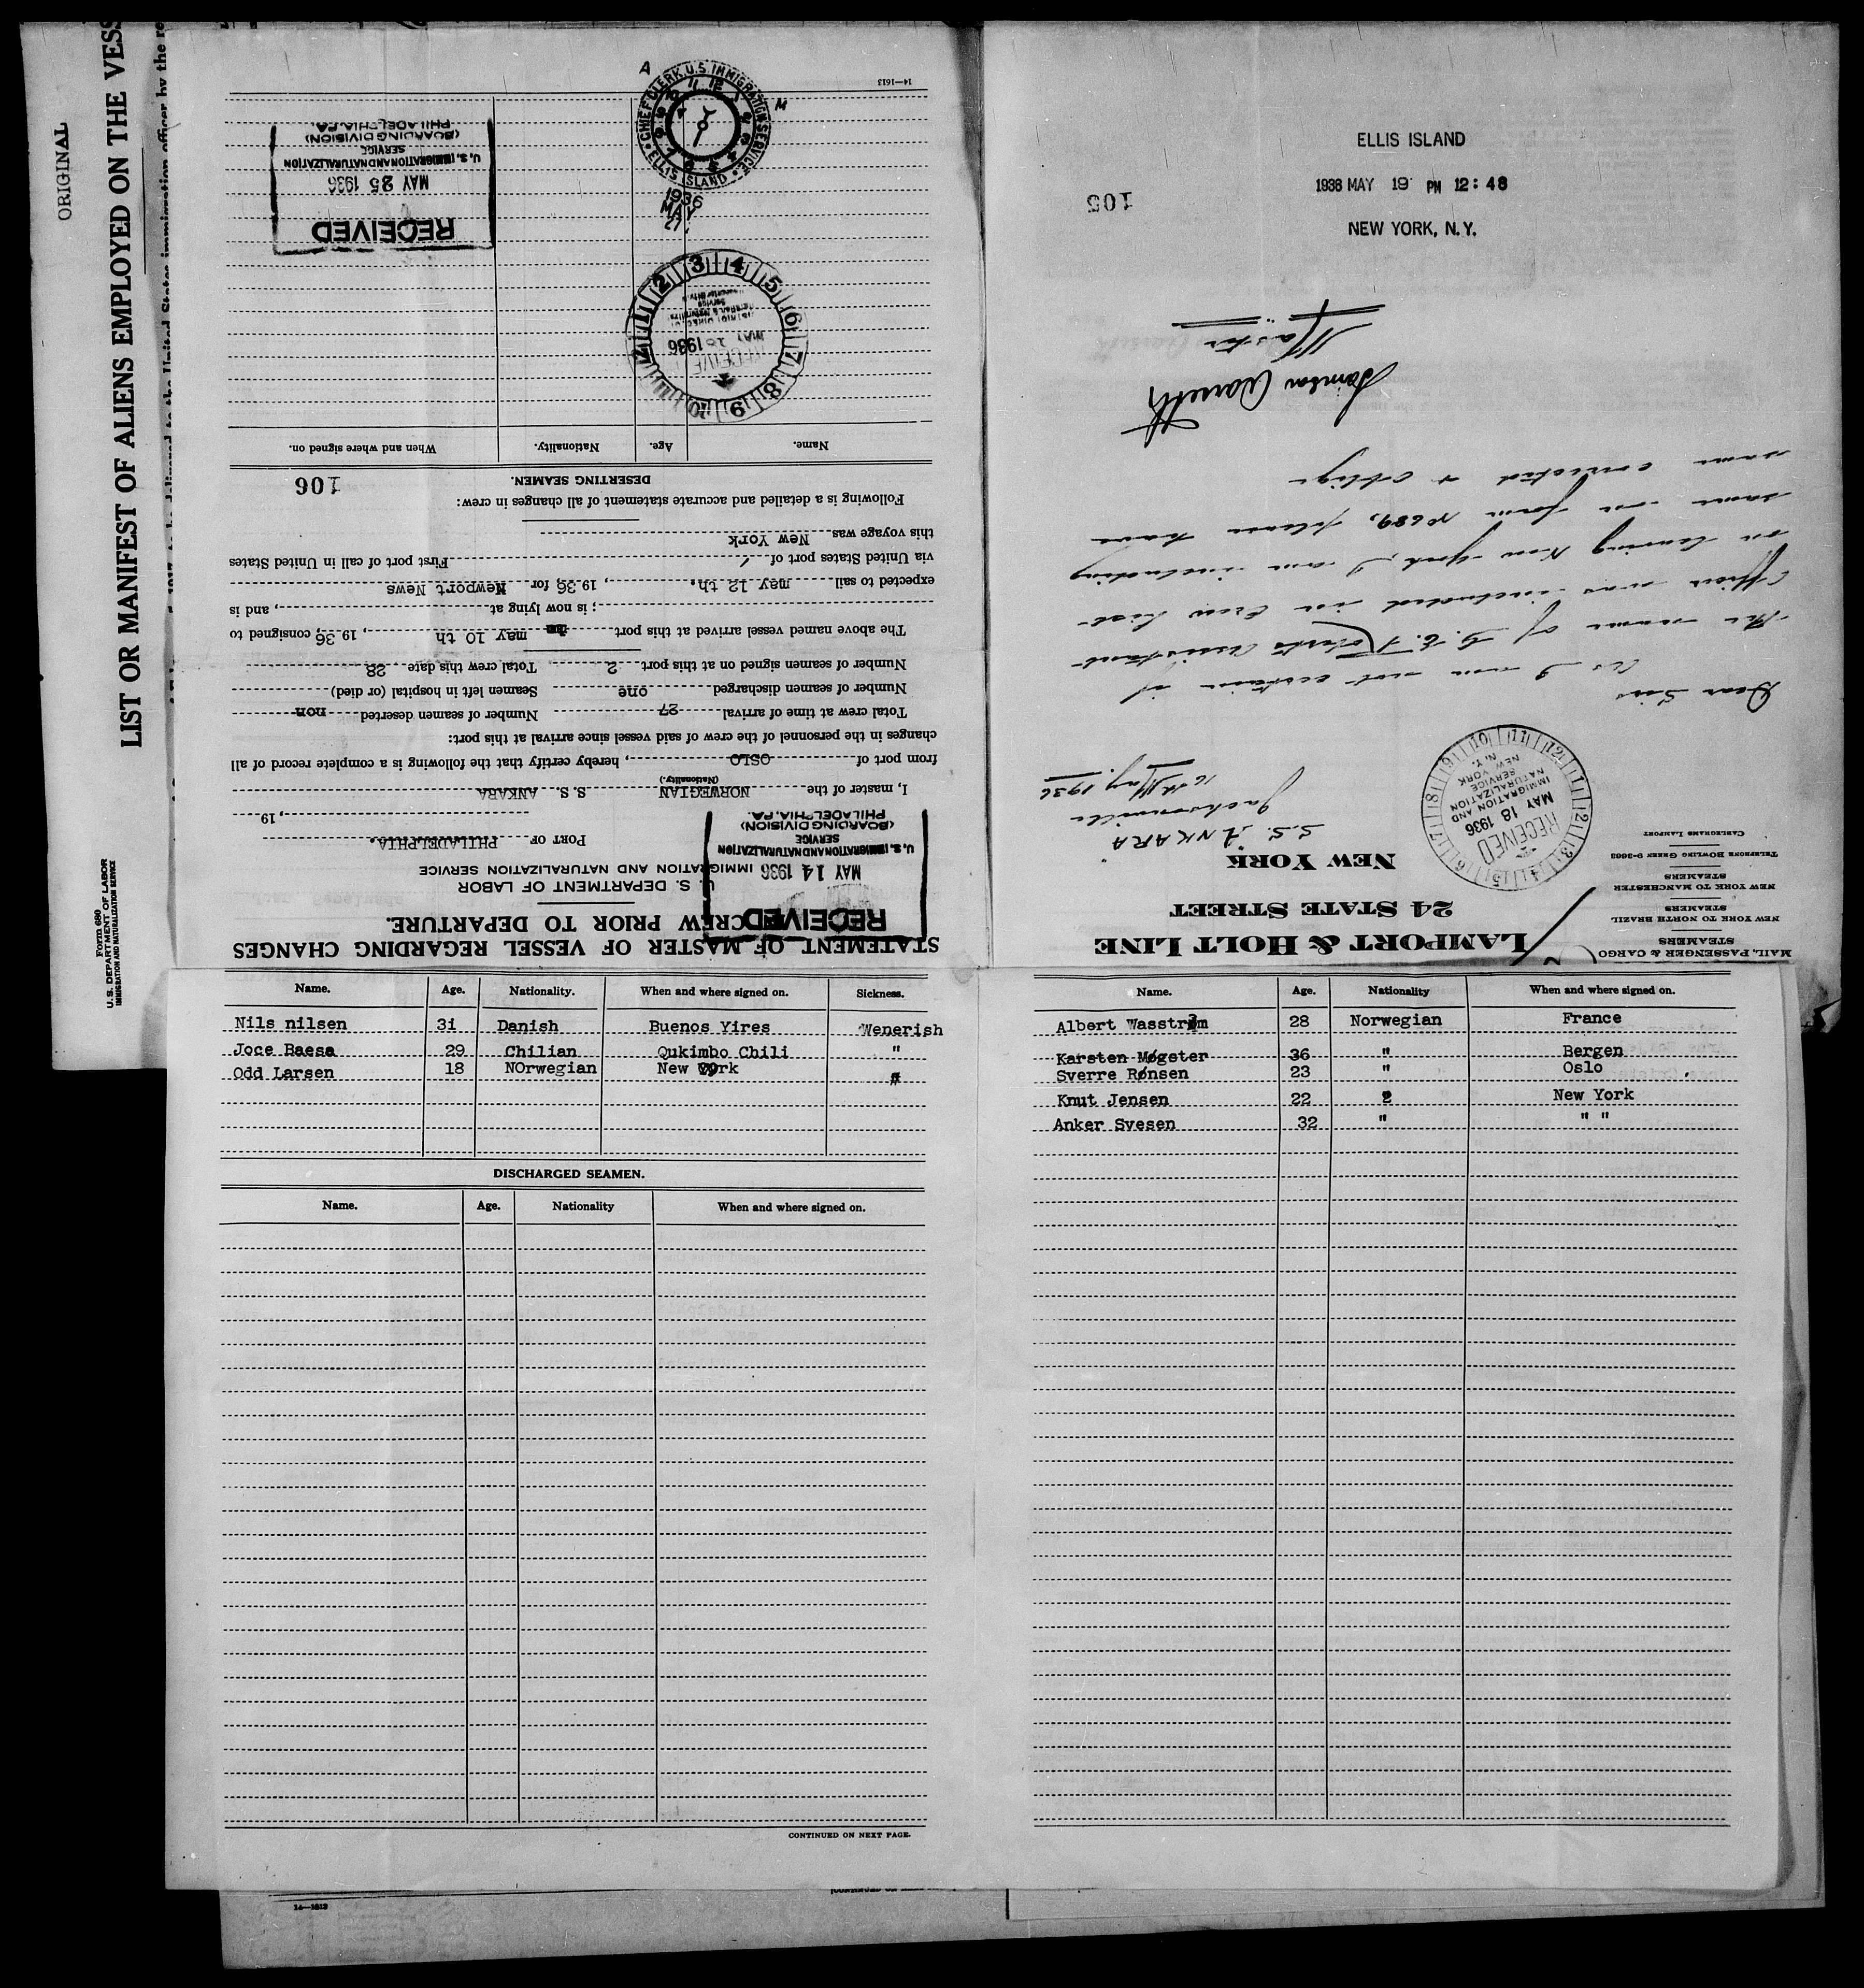 ORIGINAL
LIST OR MANIFEST OF ALIENS EMPLOYED ON THE VESS
to be delivered to the United States immigration officer by the re
Form 680
U. S. DEPARTMENT OF LABOR
IMMIGRATION AND NATURALIZATION SERVICE
STATEMENT OF MASTER OF VESSEL REGARDING CHANGES
CREW PRIOR TO DEPARTURE.
U. S. DEPARTMENT OF LABOR
IMMIGRATION AND NATURALIZATION SERVICE
RECEIVED
MAY 14 1936
U. S. IMMIGRATION AND NATURALIZATION
SERVICE
(BOARDING DIVISION)
PHILADELPHIA, PA.
PORT OF PHILADELPHIA.
, 19
I, master of the NORWEGIAN S. S. ANKARA
(Nationality.)
from port of OSLO, hereby certify that the following is a complete record of all
changes in the personnel of the crew of said vessel since arrival at this port:
Total crew at time of arrival 27 Number of seamen deserted non
Number of seamen discharged one Seamen left in hospital (or died)
Number of seamen signed on at this port 2 Total crew this date 28
The above named vessel arrived at this port may 10 th, 19 36, consigned to
; is now lying at , and is
expected to sail may 12 th., 19 36, for Newport News
via United States port of / First port of call in United States
this voyage was New York
Following is a detailed and accurate statement of all changes in crew:
DESERTING SEAMEN.
106
Name. Age. Nationality. When and where signed on.
RECEIVE
MAY 18 1936
1 2 3 4 5 6 7 8 9 10
RECEIVED
MAY 25 1936
U. S. IMMIGRATION AND NATURALIZATION
SERVICE
(BOARDING DIVISION)
PHILADELPHIA, PA.
A M
CHIEF CLERK U.S. IMMIGRATION SERVICE
ELLIS ISLAND
1936
MAY
21
14—1613
MAIL, PASSENGER & CARGO
STEAMERS
NEW YORK TO NORTH BRAZIL
STEAMERS
NEW YORK TO MANCHESTER
STEAMERS
TELEPHONE BOWLING GREEN 9-3665
CABLEGRAMS LAMPORT
LAMPORT & HOLT LINE
24 STATE STREET
NEW YORK
RECEIVED
MAY 18 1936
IMMIGRATION AND
NATURALIZATION
SERVICE
NEW YORK
N. Y.
S.S. "ANKARA"
Jacksonville
16th May. 1936
Dear Sirs
As I am not certain if
the name of G. E. Roberts Assistant
Officer was included in Crew List
on leaving New York, I am including
same on form No 689, please have
same corrected & oblige
Master
ELLIS ISLAND
1936 MAY 19 PM 12:48
NEW YORK, N. Y.
105
Name. Age. Nationality. When and where signed on. Sickness.
Nils nilsen 31 Danish Buenos Yires Wenerish
Joce Baesa 29 Chilian Qukimbo Chili "
Odd Larsen 18 NOrwegian New York "
DISCHARGED SEAMEN.
Name. Age. Nationality When and where signed on.
CONTINUED ON NEXT PAGE.
Name. Age. Nationality When and where signed on.
Albert Wasstrøm 28 Norwegian France
Karsten Møgster 36 " Bergen
Sverre Rønsen 23 " Oslo
Knut Jensen 22 2 New York
Anker Svesen 32 " " "
14—1613